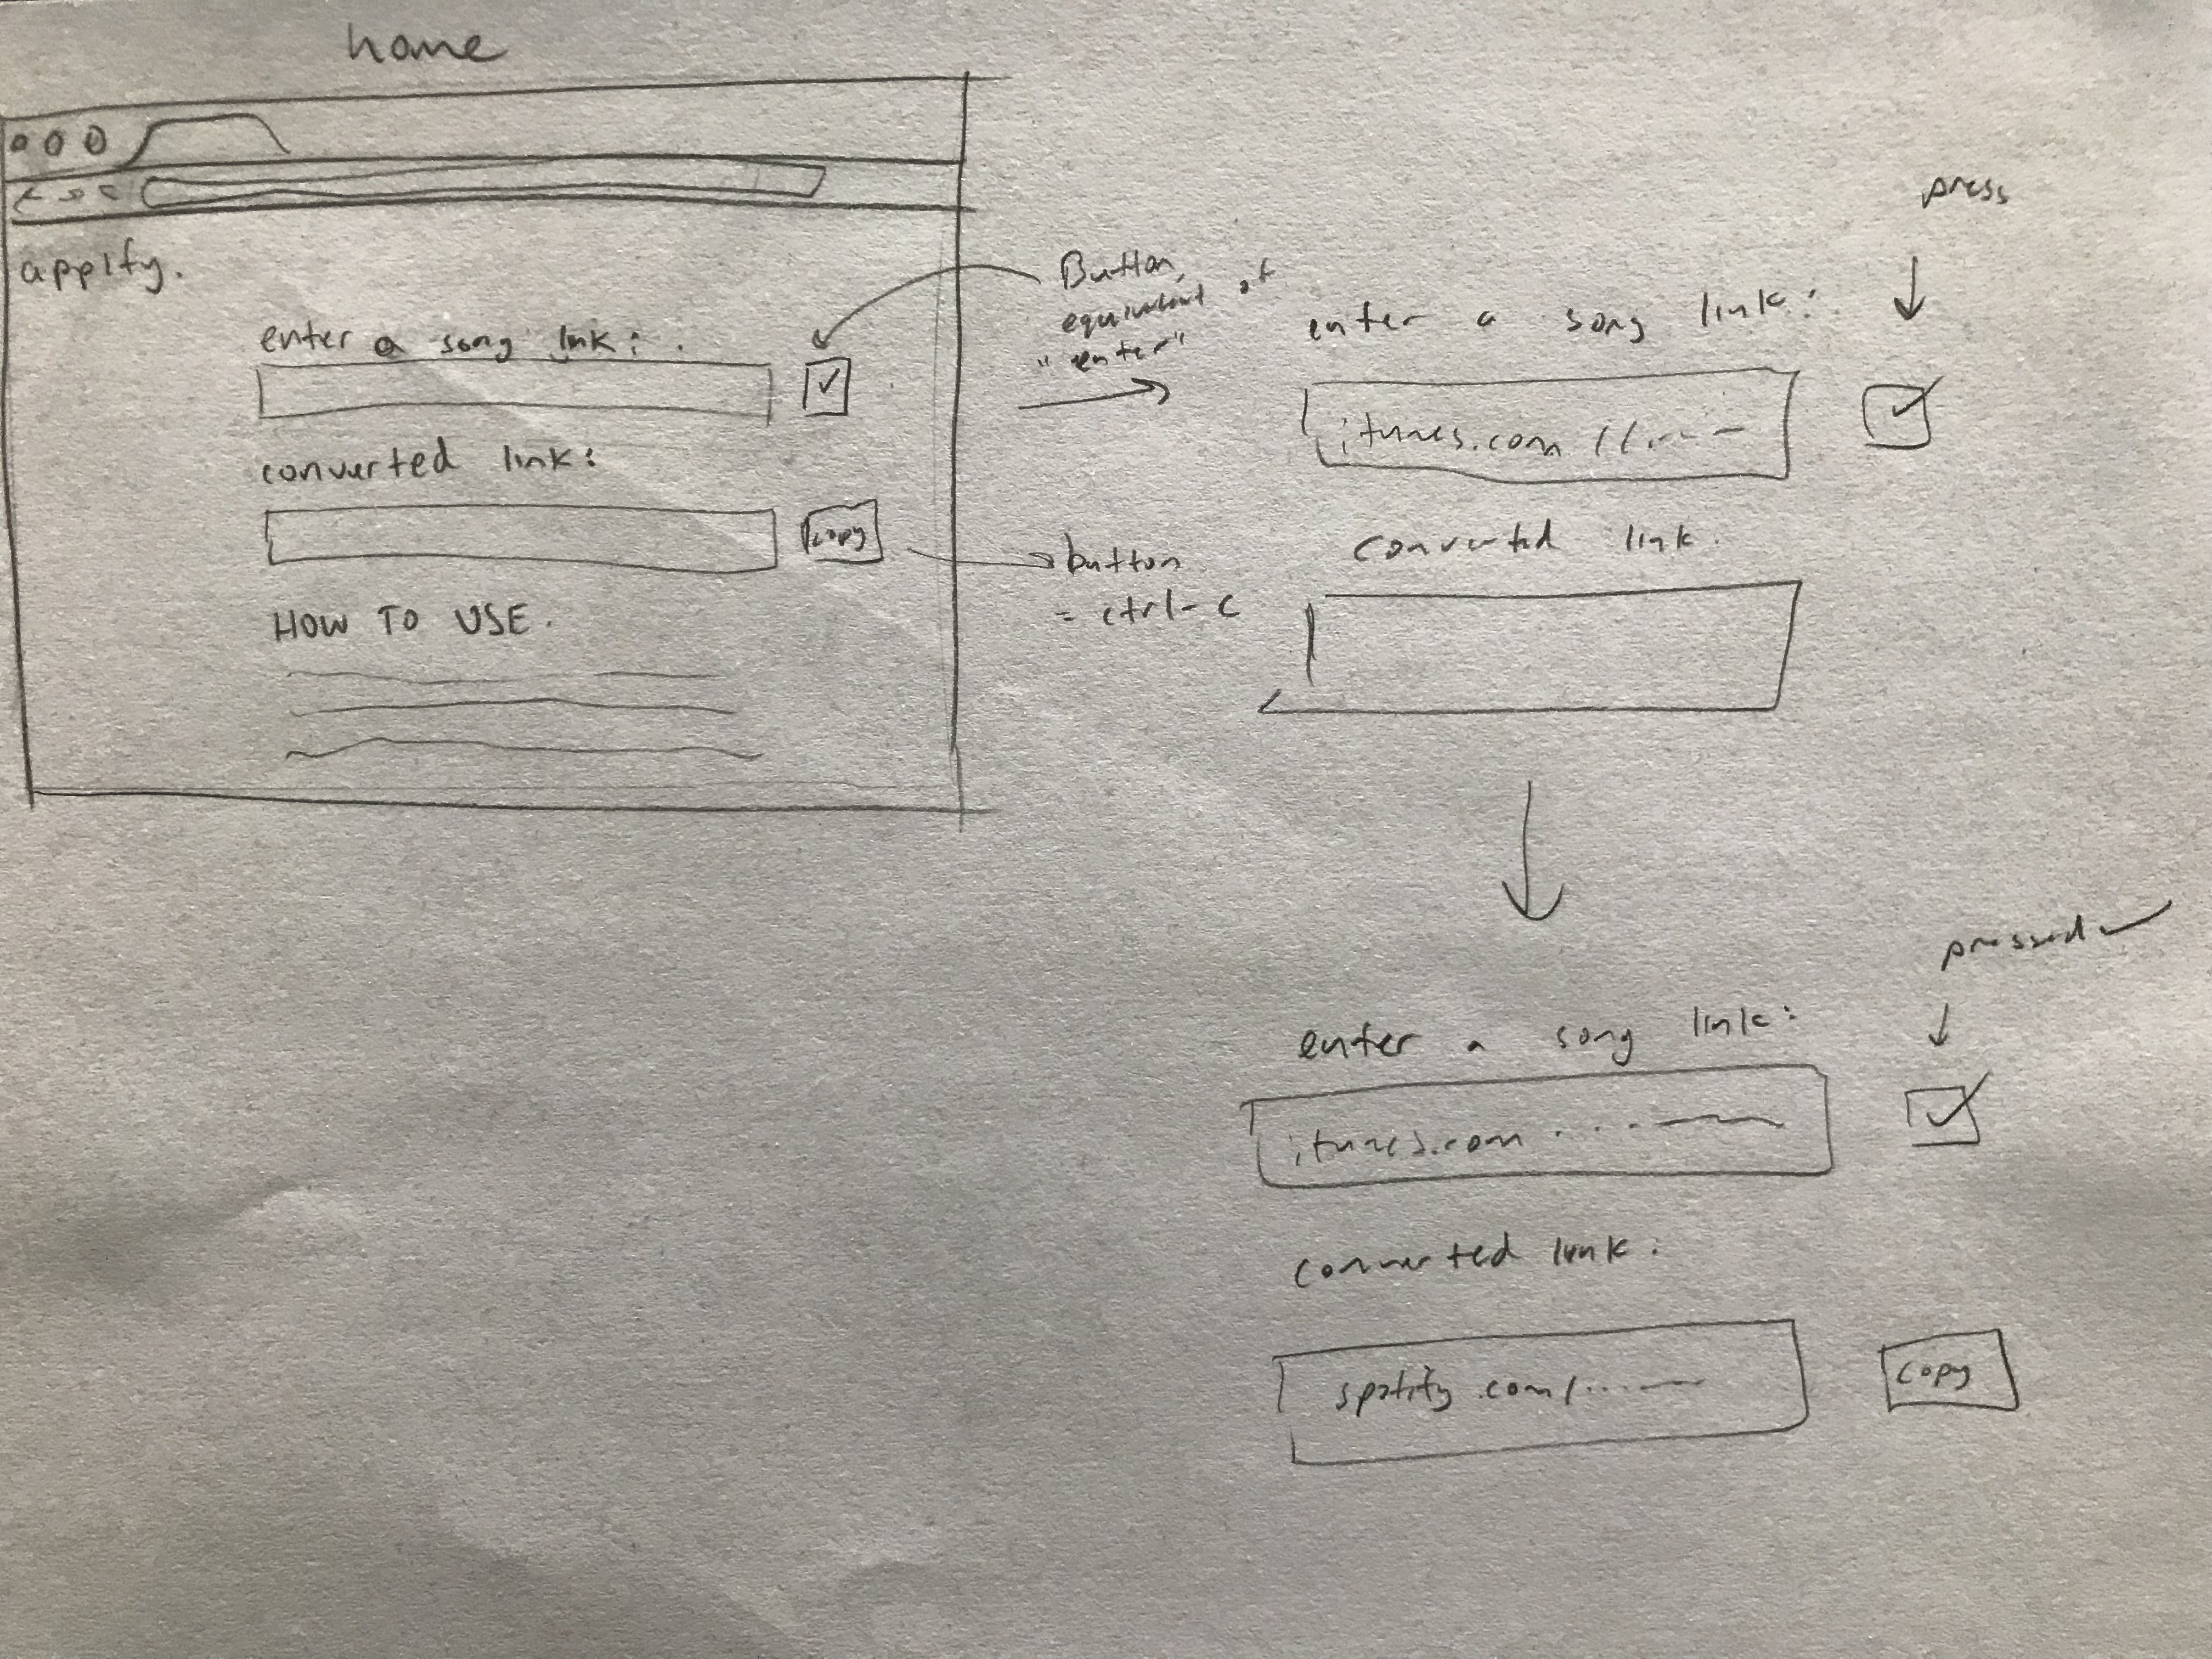 home
applfy.
enter a song link:
✓
converted link:
copy
HOW TO USE.
Button,
equivalent of
"enter"
button
= ctrl-c
press
enter a song link:
itunes.com //...
✓
converted link.
pressed ✓
enter a song link:
itunes.com ...
✓
converted link.
spotify.com/......
copy